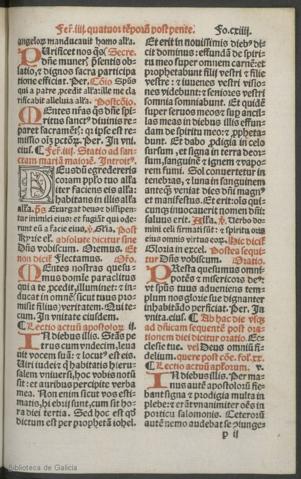 Fer. iiij. quatuor tēporū post pente. Fo. cxiiij.
angelorū manducauit homo alľa.
Purificet nos q̄s Secre.
dn̄e muneris p̄sentis ob
latio, et dignos sacra participa
tione efficiat. Per. Cōio Spūs
qui a patre p̄cedit alľa: ille me cla
rificabit alleluia alľa. Postcōio.
Mentes nr̄as q̄s dn̄e spi
ritus sanctus diuinis re
paret sacramētis: q̄ ipse est remis
sio oīm pctōrū. Per. In vni.
ciusdē. Fer. iiij. Statio ad san
ctam mariā maiorē. Introitus.
Deus dū egredereris
coram pplo tuo alľa
iter faciens eis alľa:
habitans in illis alľa
alľa. ps̄ Exurgat deus et dissipen
tur inimici eius: et fugiāt qui ode
runt eū a facie eius. Gloria. Post
Kyrie el. absolute dicitur sine
Dn̄s vobiscum. Oremus. Et
non dicitur Flectamus. Oro.
Mentes nostras quesu-
mus domine paraclitus
qui a te p̄cedit, illuminet: et in-
ducat in omnē, sicut tuus promi-
sit filius, veritatem. Qui te-
cum. In vnitate eiusdem.
Lectio actuū apostolorū ii.
In diebus illis. Stās pe
trus cum vndecim, leua
uit vocem suā: et locutus est eis.
Uiri iudei et qui habitatis hierusa-
salem vniuersi, hoc vobis notū
sit: et auribus percipite verba
mea. Non enim sicut vos esti-
matis, hi ebrij sunt, cum sit ho-
ra diei tertia. Sed hoc est qd
dictum est per prophetā iohel.
Et erit in nouissimis diebus di-
cit dominus: effundā de spiri-
tu meo super omnem carnē: et
prophetabunt filij vestri et filie
vestre: et iuuenes vestri visio-
nes videbunt: et seniores vestri
somnia somniabunt. Et quidē
super seruos meos et sup ancil-
las meas in diebus illis effun-
dam de spiritu meo: et prophet̄a-
bunt. Et dabo prodigia in celo
sursum, et signa in terra deor-
sum, sanguinē et ignem et vapo
rem fumi. Sol conuertetur in
tenebras, et luna in sanguinem
anteq̄ veniat dies dn̄i magnus
et manifestus. Et erit: ois qui-
cunq̄ inuocauerit nomen dn̄i
saluus erit. Alľa. v. Uerbo do-
mini celi firmati sūt: et spiritu oris
eius omnis virtus eorum. Hic dicitur
Gloria in excel. Postea sequi-
tur Dn̄s vobiscum. Oratio.
Presta quesumus omni-
potēs et misericors deus: vt
et spūs sctūs adueniens tem-
plum nos glorie sue dignanter
inhabitādo perficiat. Per. In
vnita. eius. Ad hāc die vsq̄
ad dn̄icam sequentē post ora-
tionem diei dicitur oratio. Ec-
clesie tue. vel Deus omniū fi-
delium. quere post cōe. fol. xx.
Lectio actuū aplorum. v.
In diebus illis. Per ma-
nus autē apostolorū fie-
bant signa et prodigia multa in
plebe: et erāt vnanimiter oēs in
porticu salomonis. Ceterorū
autē nemo audebat se iunge-
p ij
Biblioteca de Galicia